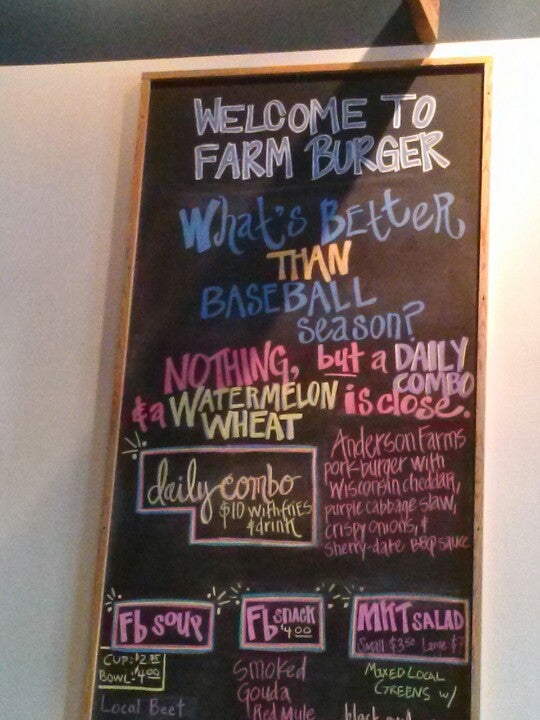 WELCOME TO
FARM BURGER
What's Better
THAN
BASEBALL
season?
NOTHING, but a DAILY
COMBO
& a WATERMELON is close.
WHEAT
daily combo
$10 with fries
& drink
Anderson Farms
pork burger with
Wisconsin cheddar,
purple cabbage slaw,
crispy onions, &
sherry-date BBQ sauce
Fb SOUP
CUP: $2.85
BOWL: $4.00
Local Beet
Fb SNACK
$4.00
Smoked
Gouda
Red Mule
MKT SALAD
Small $3.50 Large $7
MIXED LOCAL
GREENS w/